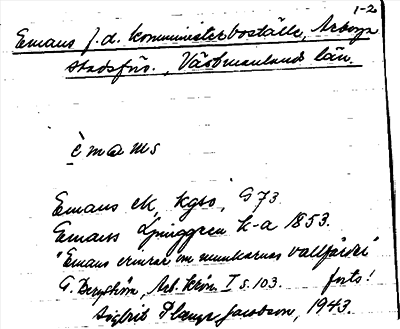 1-2
Emaus f.d. komministerboställe, Arboga
stadsförs., Västmanlands län.
èmaᵚs
Emaus ek, kgbo, G 73
Emaus Ljunggren k-a 1853.
"Emaus erinrar om munkarnas vallfärder"
G. Bergström, Arb. krön. I s. 103. forts!
Sigbrit Plænge Jacobson, 1943.